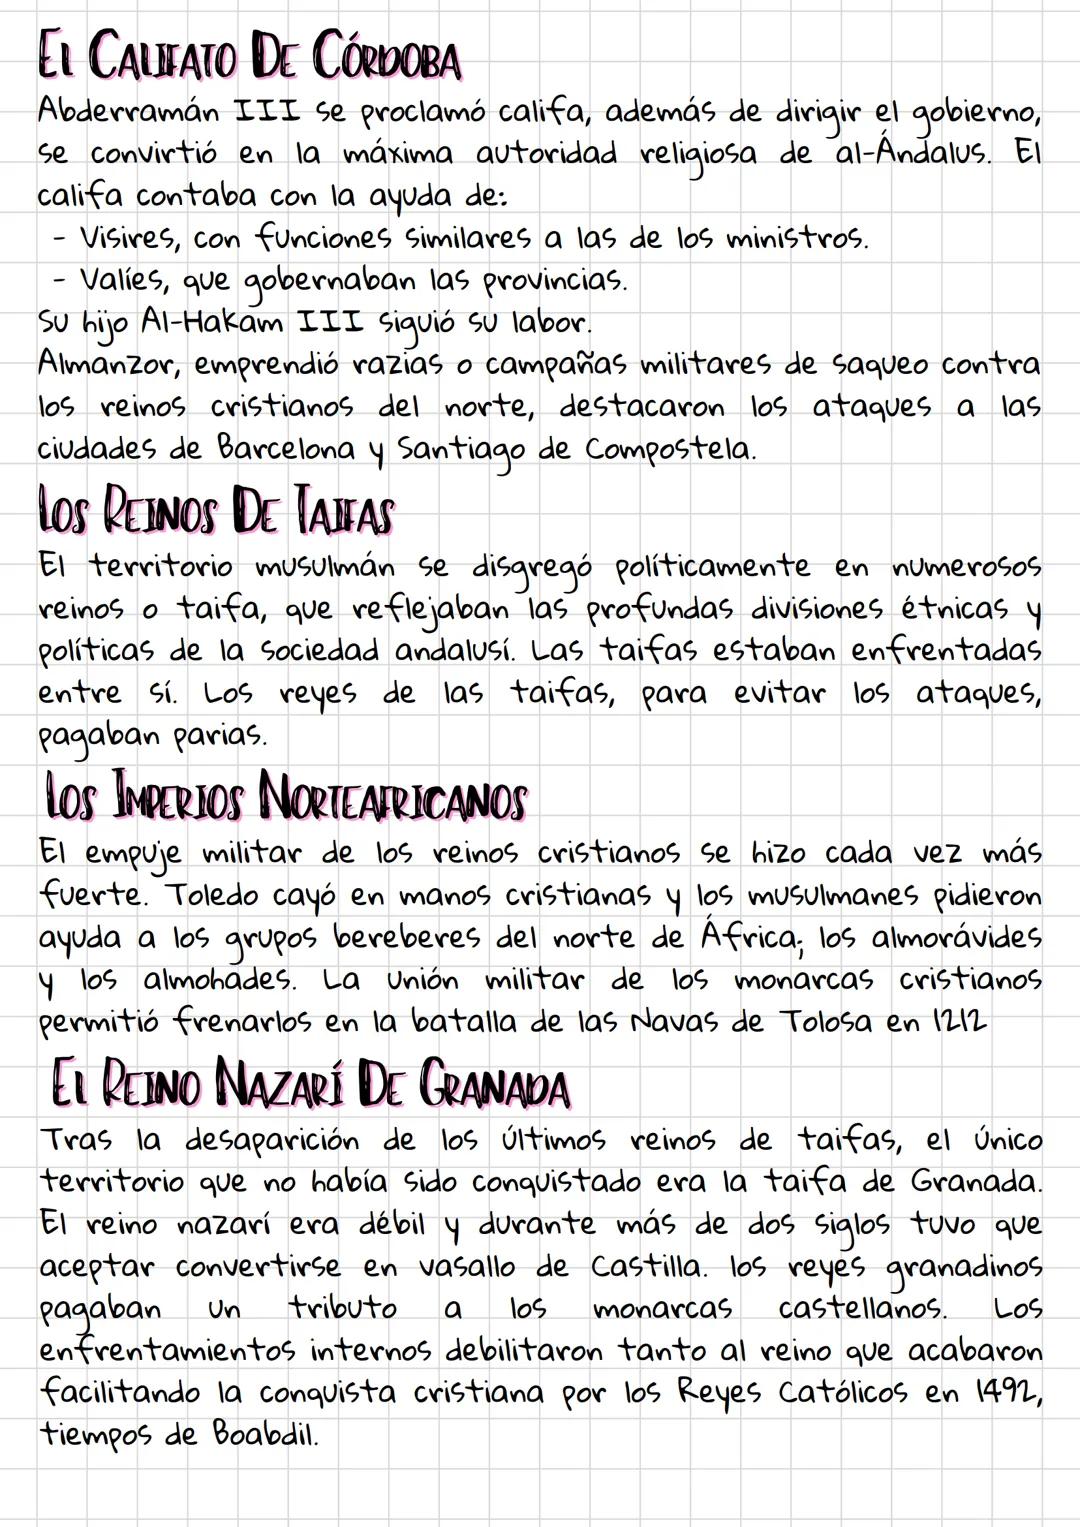 El Califato De Córdoba
Abderramán III se proclamó califa, además de dirigir el gobierno,
se convirtió en la máxima autoridad religiosa de al-Ándalus. El
califa contaba con la ayuda de:
- Visires, con funciones similares a las de los ministros.
- Valíes, que gobernaban las provincias.
Su hijo Al-Hakam III siguió su labor.
Almanzor, emprendió razias o campañas militares de saqueo contra
los reinos cristianos del norte, destacaron los ataques a las
ciudades de Barcelona y Santiago de Compostela.
Los Reinos De Taifas
El territorio musulmán se disgregó políticamente en numerosos
reinos o taifa, que reflejaban las profundas divisiones étnicas y
políticas de la sociedad andalusí. Las taifas estaban enfrentadas
entre sí. Los reyes de las taifas, para evitar los ataques,
pagaban parias.
Los Imperios Norteafricanos
El empuje militar de los reinos cristianos se hizo cada vez más
fuerte. Toledo cayó en manos cristianas y los musulmanes pidieron
ayuda a los grupos bereberes del norte de África; los almorávides
y los almohades. La unión militar de los monarcas cristianos
permitió frenarlos en la batalla de las Navas de Tolosa en 1212
El Reino Nazarí De Granada
Tras la desaparición de los últimos reinos de taifas, el único
territorio que no había sido conquistado era la taifa de Granada.
El reino nazarí era débil y durante más de dos siglos tuvo que
aceptar convertirse en vasallo de Castilla. los reyes granadinos
pagaban un tributo a los monarcas castellanos. Los
enfrentamientos internos debilitaron tanto al reino que acabaron
facilitando la conquista cristiana por los Reyes Católicos en 1492,
tiempos de Boabdil.